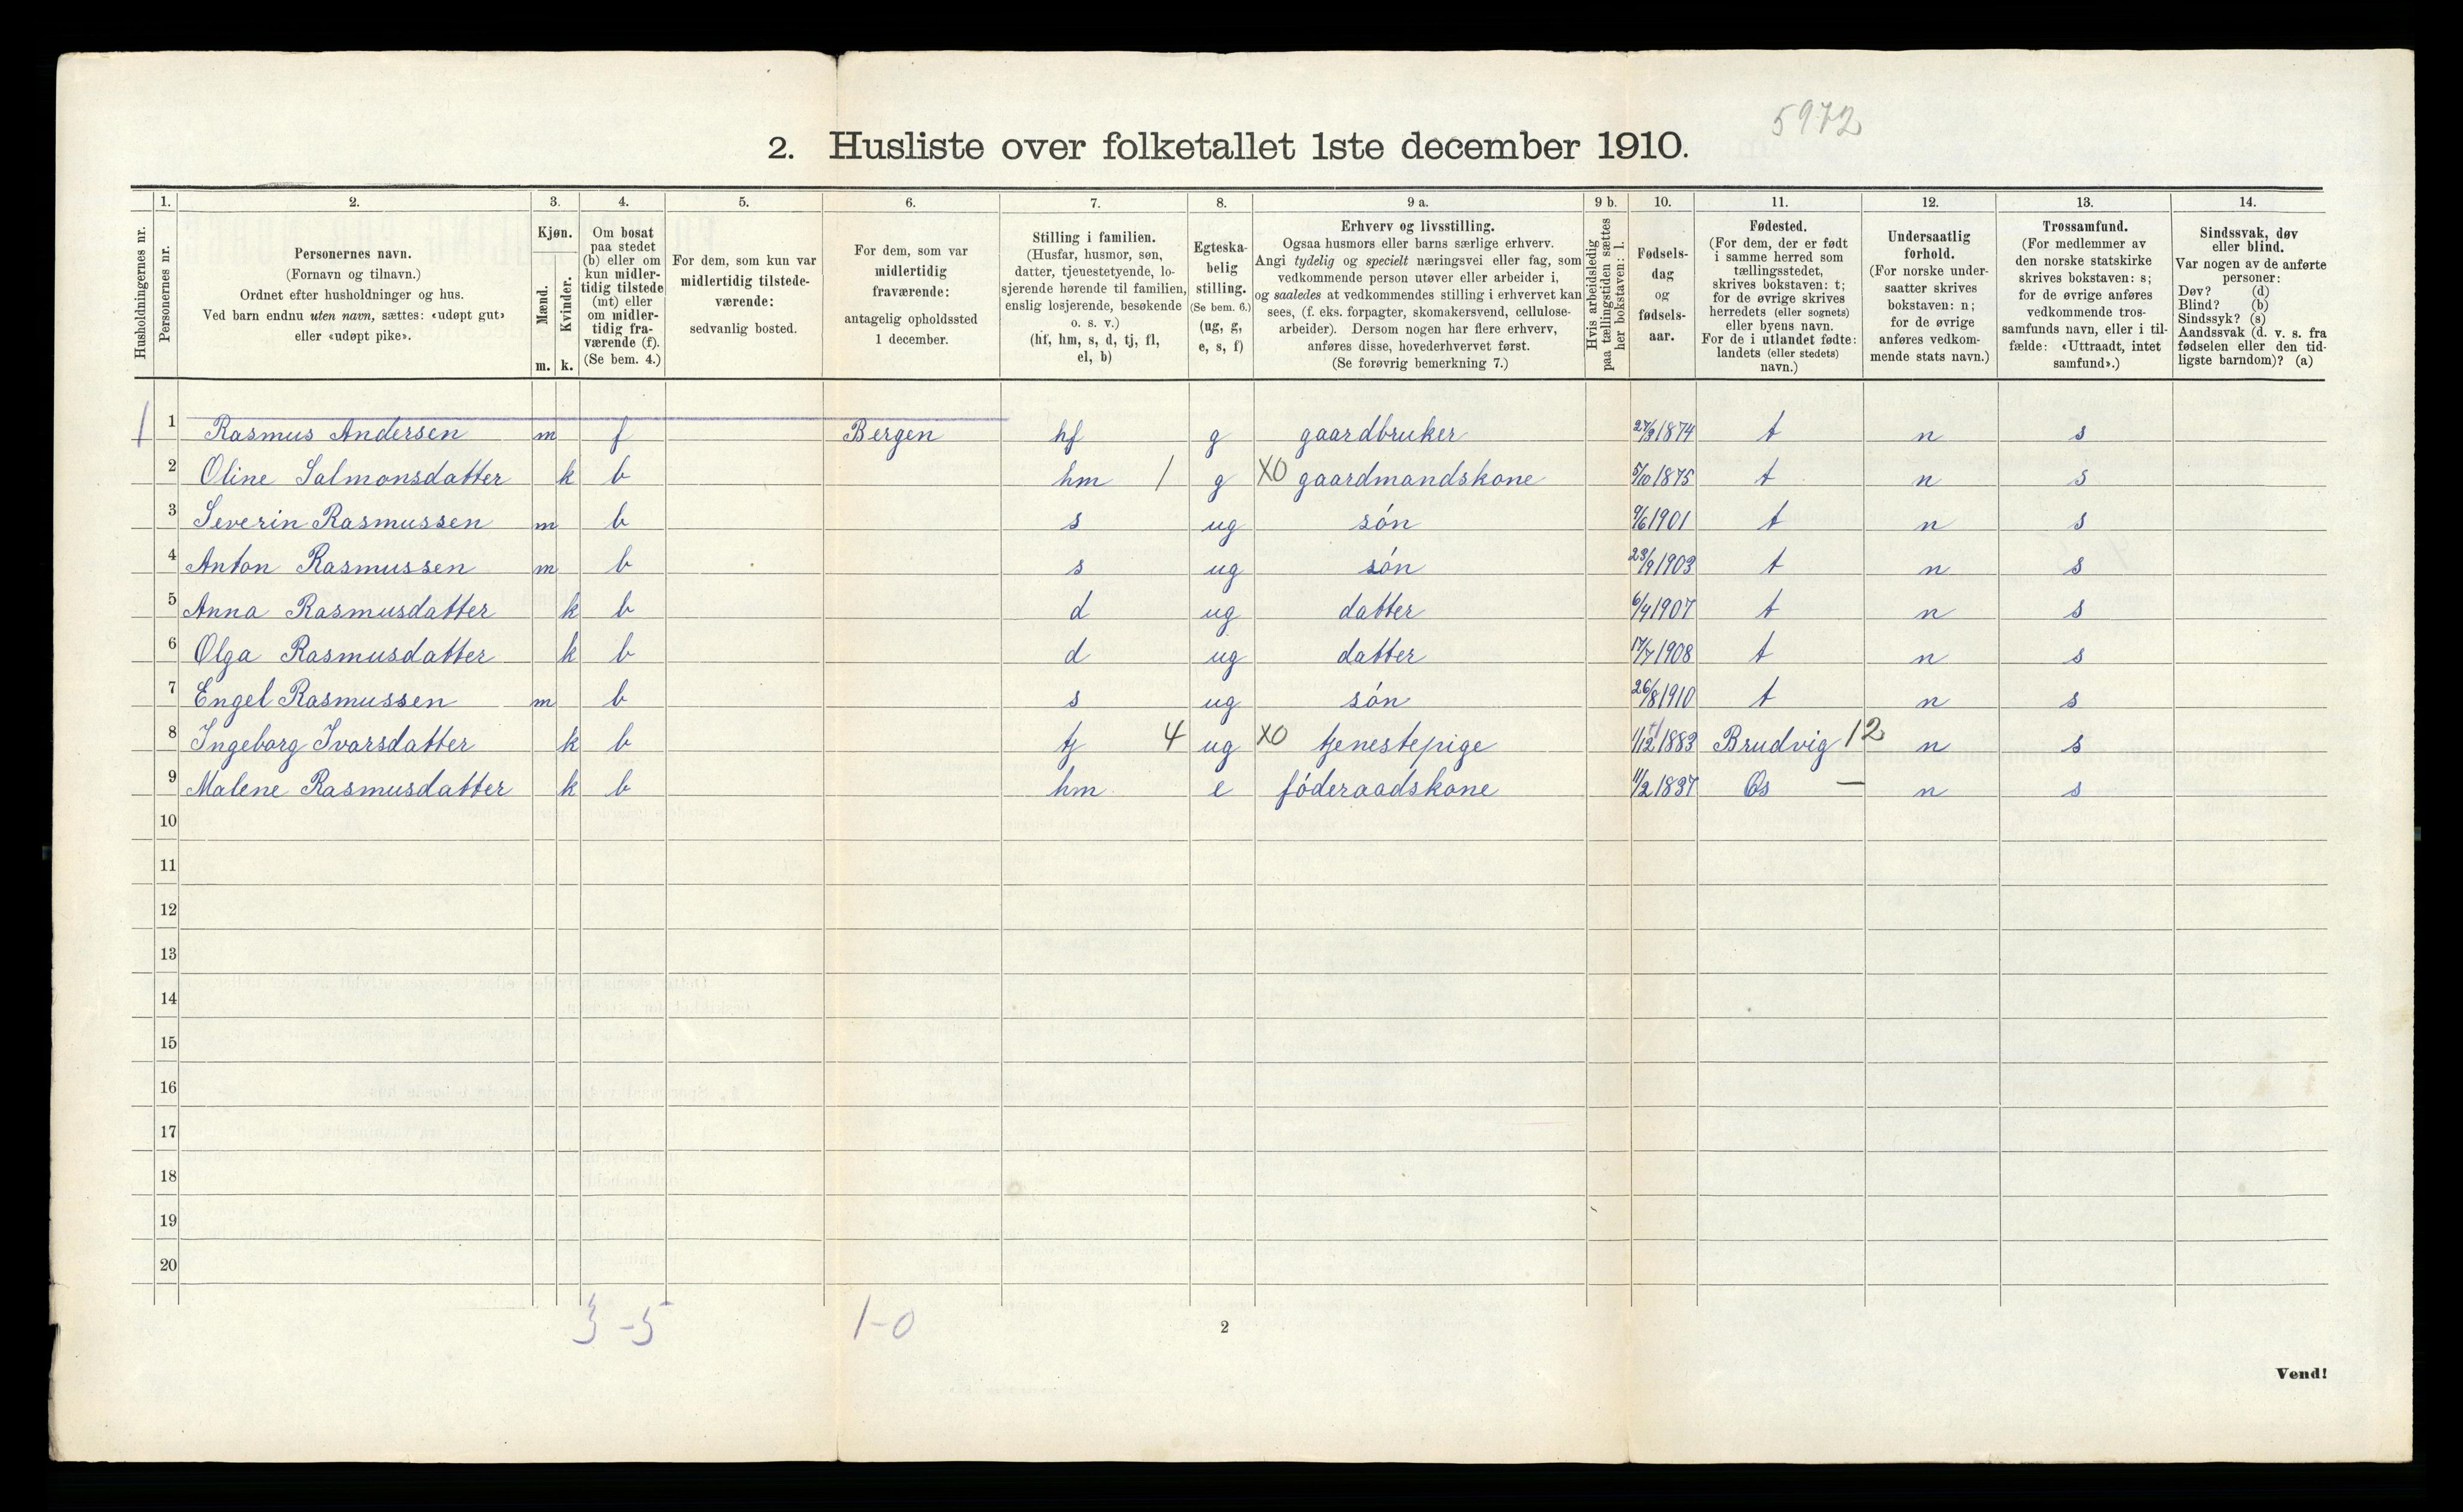 5972
2. Husliste over folketallet 1ste december 1910.
1. 2. 3. 4. 5. 6. 7. 8. 9 a. 9 b. 10. 11. 12. 13. 14.
Husholdningernes nr.
Personernes nr.
Personernes navn.
(Fornavn og tilnavn.)
Ordnet efter husholdninger og hus.
Ved barn endnu uten navn, sættes: «udøpt gut»
eller «udøpt pike».
Kjøn.
Mænd.
Kvinder.
m. k.
Om bosat
paa stedet
(b) eller om
kun midler-
tidig tilstede
(mt) eller
om midler-
tidig fra-
værende (f).
(Se bem. 4.)
For dem, som kun var
midlertidig tilstede-
værende:
sedvanlig bosted.
For dem, som var
midlertidig
fraværende:
antagelig opholdssted
1 december.
Stilling i familien.
(Husfar, husmor, søn,
datter, tjenestetyende, lo-
sjerende hørende til familien,
enslig losjerende, besøkende
o. s. v.)
(hf, hm, s, d, tj, fl,
el, b)
Egteska-
belig
stilling.
(Se bem. 6.)
(ug, g,
e, s, f)
Erhverv og livsstilling.
Ogsaa husmors eller barns særlige erhverv.
Angi tydelig og specielt næringsvei eller fag, som
vedkommende person utøver eller arbeider i,
og saaledes at vedkommendes stilling i erhvervet kan
sees, (f. eks. forpagter, skomakersvend, cellulose-
arbeider). Dersom nogen har flere erhverv,
anføres disse, hovederhvervet først.
(Se forøvrig bemerkning 7.)
Hvis arbeidsledig
paa tællingstiden sættes
her bokstaven: l.
Fødsels-
dag
og
fødsels-
aar.
Fødested.
(For dem, der er født
i samme herred som
tællingsstedet,
skrives bokstaven: t;
for de øvrige skrives
herredets (eller sognets)
eller byens navn.
For de i utlandet fødte:
landets (eller stedets)
navn.)
Undersaatlig
forhold.
(For norske under-
saatter skrives
bokstaven: n;
for de øvrige
anføres vedkom-
mende stats navn.)
Trossamfund.
(For medlemmer av
den norske statskirke
skrives bokstaven: s;
for de øvrige anføres
vedkommende tros-
samfunds navn, eller i til-
fælde: «Uttraadt, intet
samfund».)
Sindssvak, døv
eller blind.
Var nogen av de anførte
personer:
Døv? (d)
Blind? (b)
Sindssyk? (s)
Aandssvak (d. v. s. fra
fødselen eller den tid-
ligste barndom)? (a)
1 1 Rasmus Andersen m f Bergen hf g gaardbruker 1874 t n s
2 Oline Salmonsdatter k b hm 1 g XO gaardmandskone 5/10 1875 t n s
3 Severin Rasmussen m b s ug són 9/6 1901 t n s
4 Anton Rasmussen m b s ug són 23/9 1903 t n s
5 Anna Rasmusdatter k b d ug datter 6/4 1907 t n s
6 Olga Rasmusdatter k b d ug datter 17/7 1908 t n s
7 Engel Rasmussen m b s ug són 26/8 1910 t n s
8 Ingeborg Ivarsdatter k b tj 4 ug XO tjenestepige 1883 Brudvig 12 n s
9 Malene Rasmusdatter k b hm e fóderaadskone 11/2 1837 Os — n s
10
11
12
13
14
15
16
17
18
19
20
3-5 1-0
2
Vend!